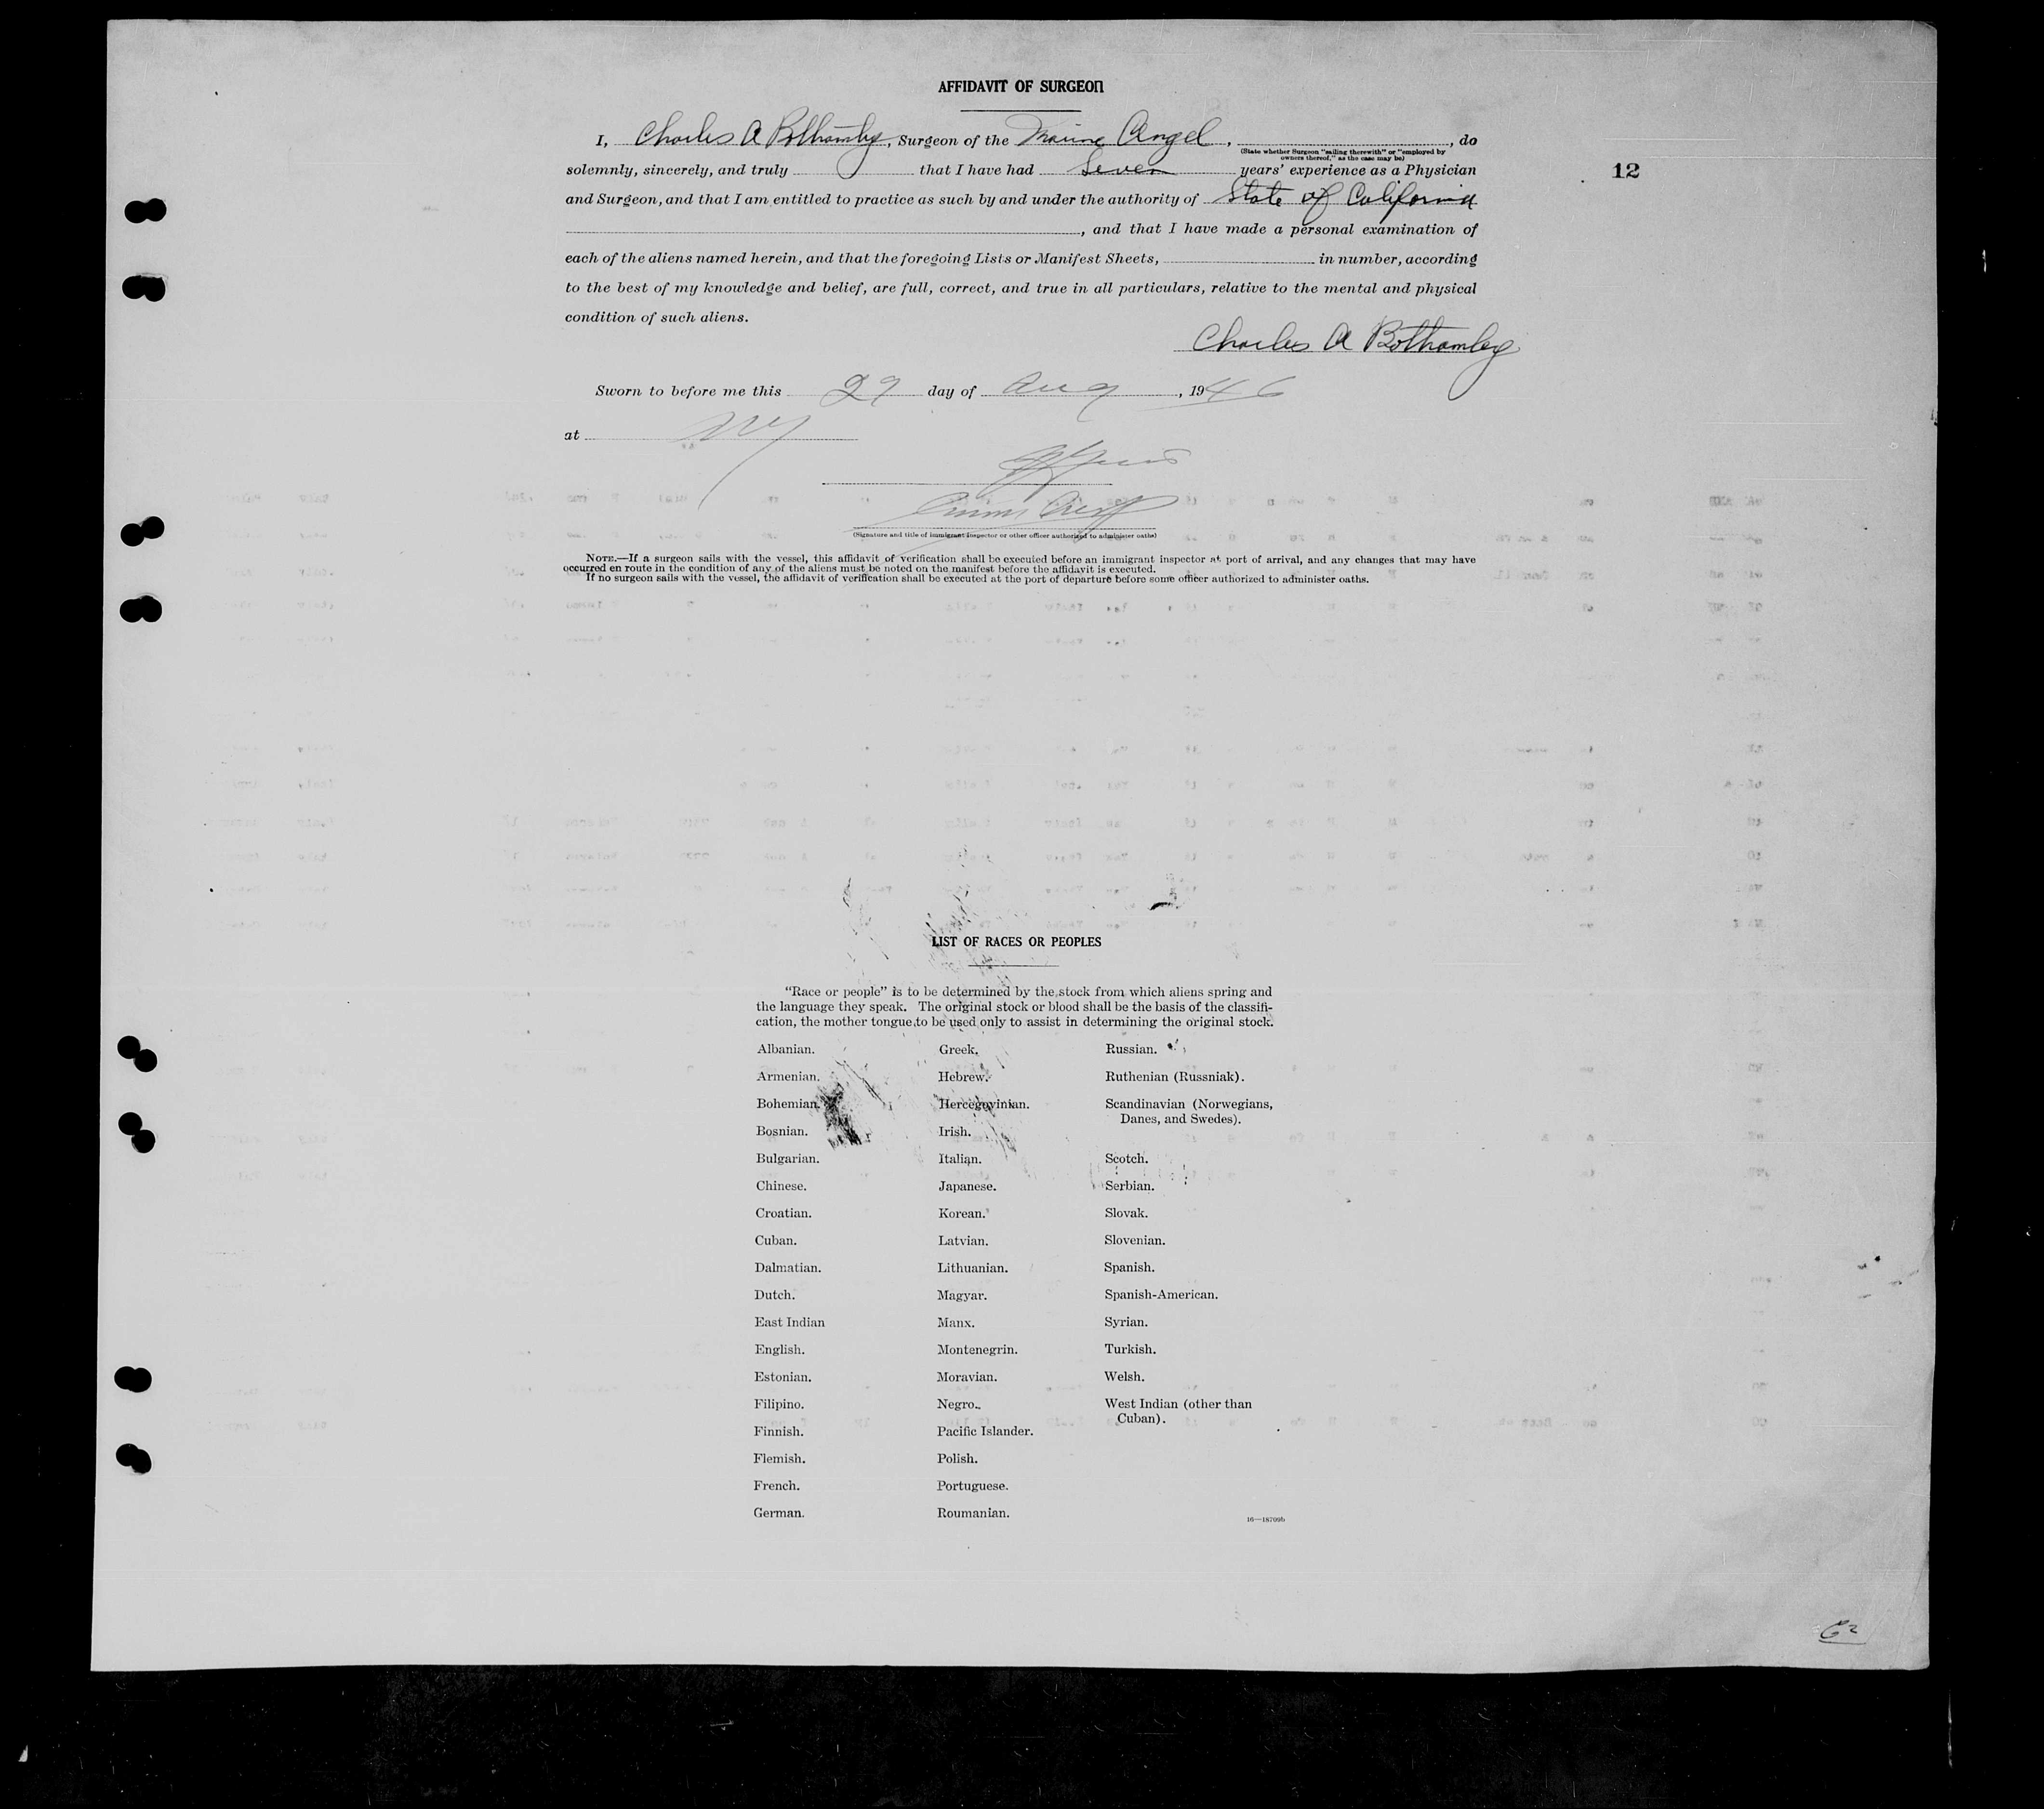 AFFIDAVIT OF SURGEON
I, Charles A Bothamley, Surgeon of the Marine Angel, , do
(State whether Surgeon "sailing therewith" or "employed by
owners thereof," as the case may be)
solemnly, sincerely, and truly that I have had Seven years' experience as a Physician
12
and Surgeon, and that I am entitled to practice as such by and under the authority of State of California
, and that I have made a personal examination of
each of the aliens named herein, and that the foregoing Lists or Manifest Sheets, in number, according
to the best of my knowledge and belief, are full, correct, and true in all particulars, relative to the mental and physical
condition of such aliens.
Charles A Bothamley
Sworn to before me this 29 day of Aug, 1946
at NY
(Signature and title of immigrant inspector or other officer authorized to administer oaths)
NOTE.—If a surgeon sails with the vessel, this affidavit of verification shall be executed before an immigrant inspector at port of arrival, and any changes that may have
occurred en route in the condition of any of the aliens must be noted on the manifest before the affidavit is executed.
If no surgeon sails with the vessel, the affidavit of verification shall be executed at the port of departure before some officer authorized to administer oaths.
LIST OF RACES OR PEOPLES
"Race or people" is to be determined by the stock from which aliens spring and
the language they speak. The original stock or blood shall be the basis of the classifi-
cation, the mother tongue to be used only to assist in determining the original stock.
Albanian.
Armenian.
Bohemian.
Bosnian.
Bulgarian.
Chinese.
Croatian.
Cuban.
Dalmatian.
Dutch.
East Indian
English.
Estonian.
Filipino.
Finnish.
Flemish.
French.
German.
Greek.
Hebrew.
Hercegovinian.
Irish.
Italian.
Japanese.
Korean.
Latvian.
Lithuanian.
Magyar.
Manx.
Montenegrin.
Moravian.
Negro.
Pacific Islander.
Polish.
Portuguese.
Roumanian.
Russian.
Ruthenian (Russniak).
Scandinavian (Norwegians,
Danes, and Swedes).
Scotch.
Serbian.
Slovak.
Slovenian.
Spanish.
Spanish-American.
Syrian.
Turkish.
Welsh.
West Indian (other than
Cuban).
16—18709b